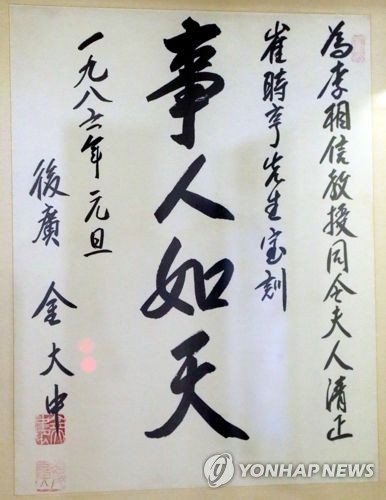 為李相信教授同令夫人清正
崔時亨先生宝刻
事人如天
一九八六年 元旦
後廣 金大中
YONHAP NEWS